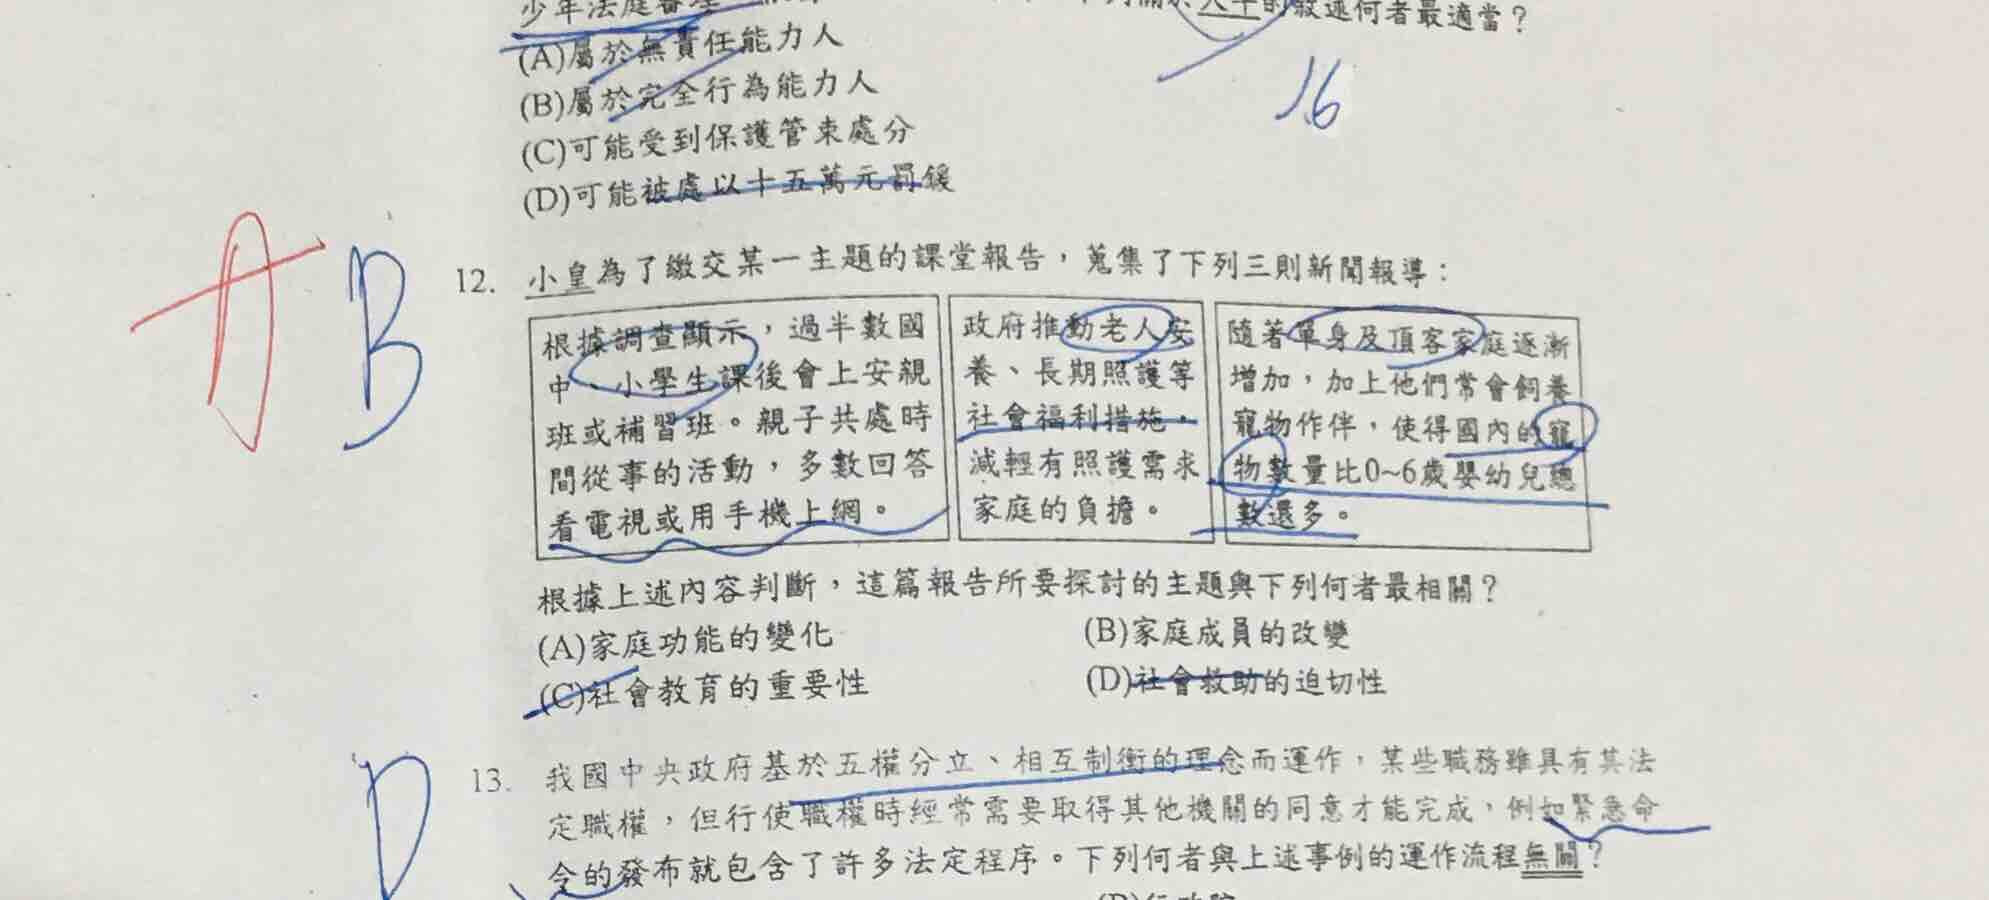 少年法庭審理
的敘述何者最適當？
(A)屬於無責任能力人
(B)屬於完全行為能力人
16
(C)可能受到保護管束處分
(D)可能被處以十五萬元罰鍰
A
B
12. 小皇為了繳交某一主題的課堂報告，蒐集了下列三則新聞報導：
根據調查顯示，過半數國
中、小學生課後會上安親
班或補習班。親子共處時
間從事的活動，多數回答
看電視或用手機上網。
政府推動老人安
養、長期照護等
社會福利措施，
減輕有照護需求
家庭的負擔。
隨著單身及頂客家庭逐漸
增加，加上他們常會飼養
寵物作伴，使得國內的寵
物數量比0~6歲嬰幼兒總
數還多。
根據上述內容判斷，這篇報告所要探討的主題與下列何者最相關？
(A)家庭功能的變化
(B)家庭成員的改變
(C)社會教育的重要性
(D)社會救助的迫切性
D
13. 我國中央政府基於五權分立、相互制衡的理念而運作，某些職務雖具有其法
定職權，但行使職權時經常需要取得其他機關的同意才能完成，例如緊急命
令的發布就包含了許多法定程序。下列何者與上述事例的運作流程無關？